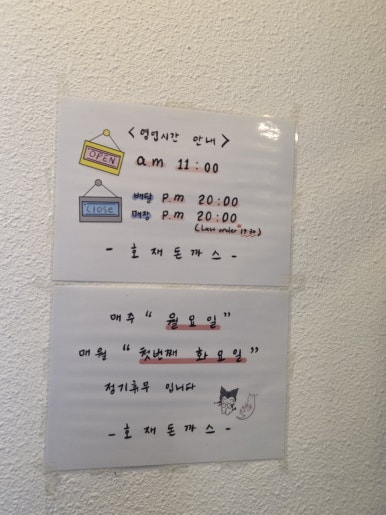 <영업시간 안내>
OPEN
am 11:00
close
배달 P.M 20:00
매장 P.M 20:00
(Last order 19:30)
- 호재돈까스 -
매주 "월요일"
매월 "첫번째 화요일"
정기휴무 입니다
- 호재돈까스 -